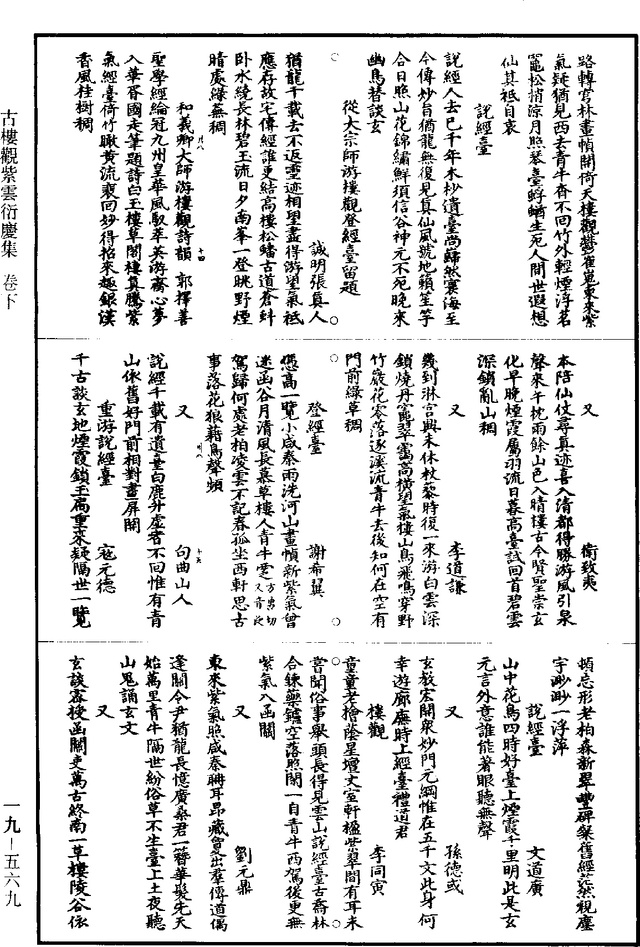 古樓觀紫雲衍慶集 卷下
路轉官林畫幀開倚天樓觀鬱崔嵬東來紫
氣疑猶見西去青牛杳不回竹外輕煙浮茗
竈松梢涼月照琴臺蜉蝣生死人間世遐想
仙其祗自哀
說經臺
說經人去已千年木杪遺臺尚巋然寰海至
今傳妙旨猶龍無復見真仙風號地籟笙竽
合日照山花錦繡鮮須信谷神元不死晚來
幽鳥替談玄
從大宗師游樓觀登經臺留題
誠明張真人
猶龍千載去不返靈迹相望盡得游望氣祗
應存故宅傳經誰更結高樓松蟠古道蒼虯
臥水繞長林碧玉流日夕南峯一登眺野煙
晴處綠蕪稠
和義卿大師游樓觀詩韻 郭擇善
聖學經綸冠九州皇華風馭萃英游齋心夢
入華胥國走筆題詩白玉樓草閣樓真騰紫
氣經臺倚竹瞰黃流裵回妙得招來趣銀漢
香風桂樹稠
又 衞致夷
本陪仙仗尋真迹喜入清都得勝游風引泉
聲來午枕雨餘山色入晴樓古今賢聖崇玄
化早晚煙霞屬羽流日暮高臺試回首碧雲
深鎖亂山稠
又 李道謙
幾到琳宫興未休杖藜時復一來游白雲深
鎖燒丹竈翠靄高橫望氣樓山鳥飛鳴穿野
竹巖花零落逐溪流青牛去後知何在空有
門前綠草稠
登經臺 謝希㒞
憑高一覽小咸秦雨洗河山畫幀新紫氣曾
迷函谷月清風長慕草樓人青牛
駕歸何處老柏凌雲不記春孤坐西軒思古
事落花狼藉鳥聲頻
又 句曲山人
說經千載有遺臺白鹿升虛省不回惟有青
山依舊好門前相對畫屏開
重游說經臺 寇元德
千古談玄地煙霞鎖玉扃重來疑隔世一覽
頓忘形老柏森新翠豐碑粲舊經蘂視塵
宇渺渺一浮萍
說經臺 文道廣
山中花鳥四時好臺上煙霞千里明此是玄
元言外意誰能著眼聽無聲
又 孫德彧
玄教宏開衆妙門元綱惟在五千文此身何
幸遊廊廡時上經臺禮道君
樓觀 李同寅
童童老檜蔭星壇丈室軒楹紫翠間有耳未
嘗聞俗事舉頭長得見雲山說經臺古喬林
合鍊藥鑪空落照閑一自青牛西駕後更無
紫氣入函關
又 劉元鼎
東來紫氣照咸秦耼耳昂藏曾出羣傳道偶
逢關令尹猶龍長憶廣桑君一簪華髮先天
始萬里青牛隔世紛俗草不生臺上土夜聽
山鬼誦玄文
又
玄談霡授函關吏萬古終南一草樓陵谷依
一九－五六九